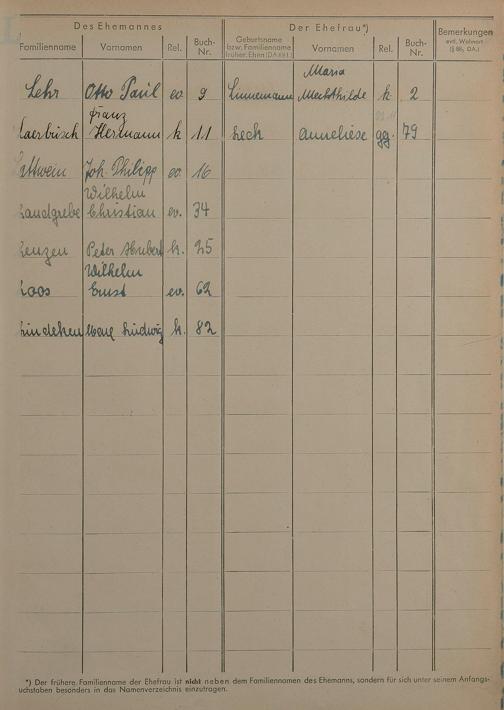 L
Des Ehemannes Der Ehefrau*) Bemerkungen
Familienname Vornamen Rel. Buch-Nr. Geburtsname bzw. Familienname früher. Ehen (DA § 81.) Vornamen Rel. Buch-Nr. evtl. Wohnort (§ 86, DA.)
Maria
Lehr Otto Paul ev. 9 Linnemann Mechthilde k 2
Franz
Laerbusch Hermann k 11 Lech Anneliese gg. 79
Joh. Philipp ev. 16
Wilhelm
Landgrebe Christian ev. 34
Lenzen Peter Hubert k. 25
Wilhelm
Loos Ernst ev. 62
Ludwig k. 82
*) Der frühere Familienname der Ehefrau ist nicht neben dem Familiennamen des Ehemanns, sondern für sich unter seinem Anfangs-
buchstaben besonders in das Namenverzeichnis einzutragen.